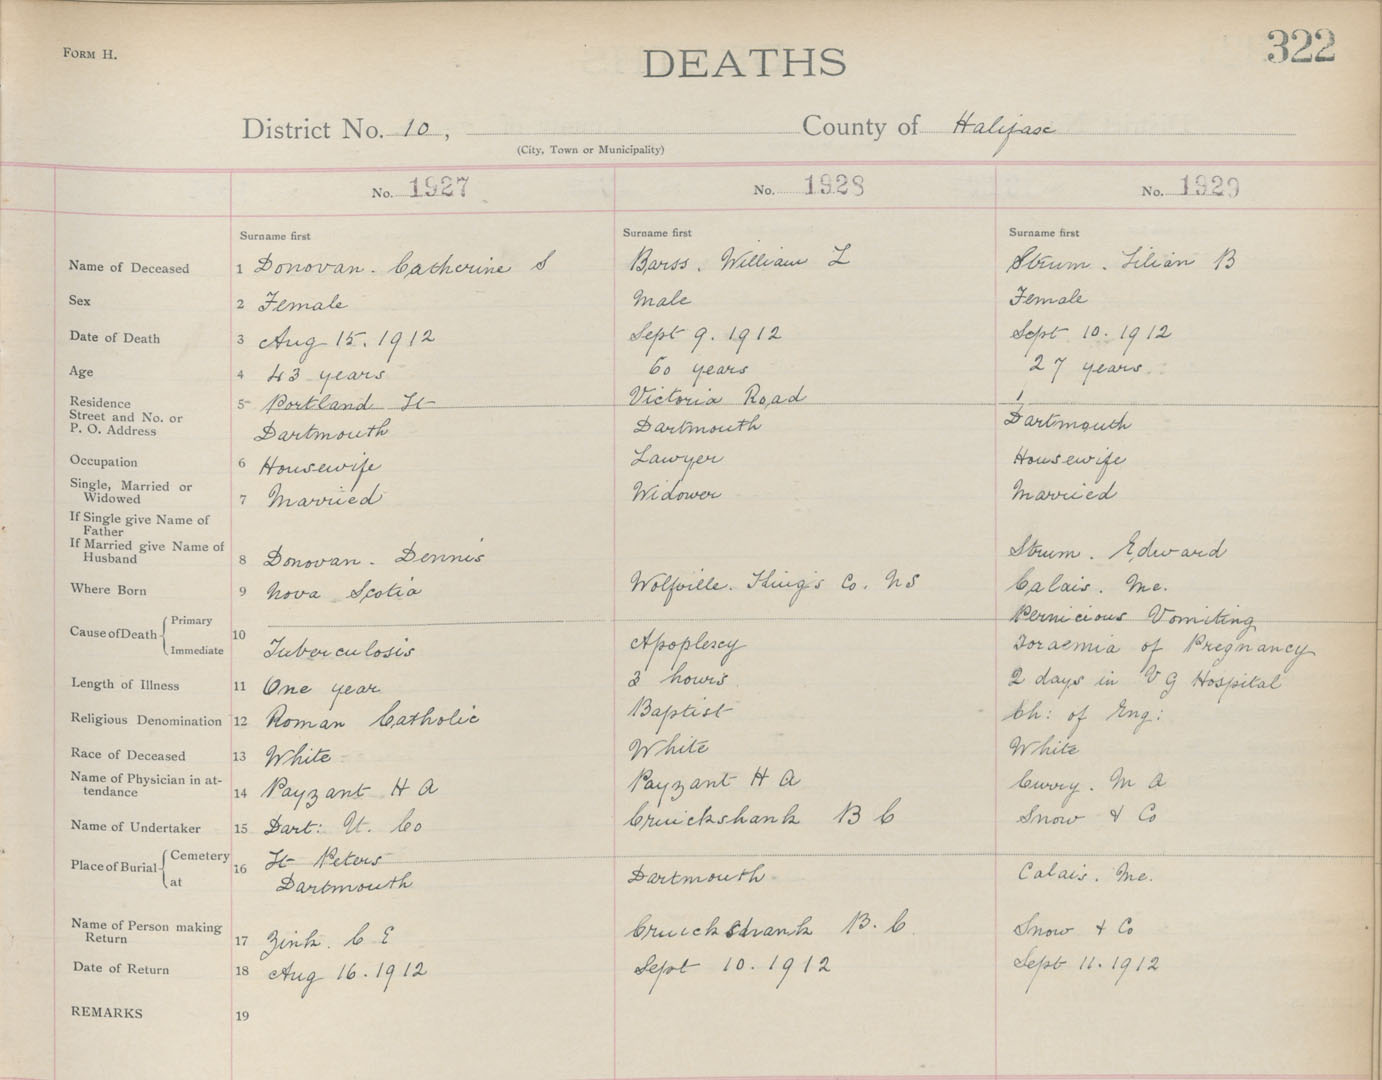 FORM H.
DEATHS
322
District No. 10, County of Halifax
(City, Town or Municipality)
No. 1927 No. 1928 No. 1929
Surname first Surname first Surname first
Name of Deceased 1 Donovan. Catherine S Barss. William L Strum. Lilian B
Sex 2 Female Male Female
Date of Death 3 Aug 15. 1912 Sept 9. 1912 Sept 10. 1912
Age 4 43 years 60 years 27 years
Residence 5 Portland St Victoria Road
Street and No. or
P. O. Address Dartmouth Dartmouth Dartmouth
Occupation 6 Housewife Lawyer Housewife
Single, Married or
Widowed 7 Married Widower Married
If Single give Name of
Father
If Married give Name of
Husband 8 Donovan. Dennis Strum. Edward
Where Born 9 Nova Scotia Wolfville. King's Co. NS Calais. Me.
Cause of Death Primary 10 Pernicious Vomiting
Immediate Tuberculosis Apoplexy Toraemia of Pregnancy
Length of Illness 11 One year 3 hours 2 days in V G Hospital
Religious Denomination 12 Roman Catholic Baptist Ch: of Eng:
Race of Deceased 13 White White White
Name of Physician in at-
tendance 14 Payzant H A Payzant H A Curry. M A
Name of Undertaker 15 Dart: U. Co Cruickshank B C Snow & Co
Place of Burial Cemetery 16 St Peters
at Dartmouth Dartmouth Calais. Me.
Name of Person making
Return 17 Zink. C E Cruickshank B. C. Snow & Co
Date of Return 18 Aug 16. 1912 Sept 10. 1912 Sept 11. 1912
REMARKS 19